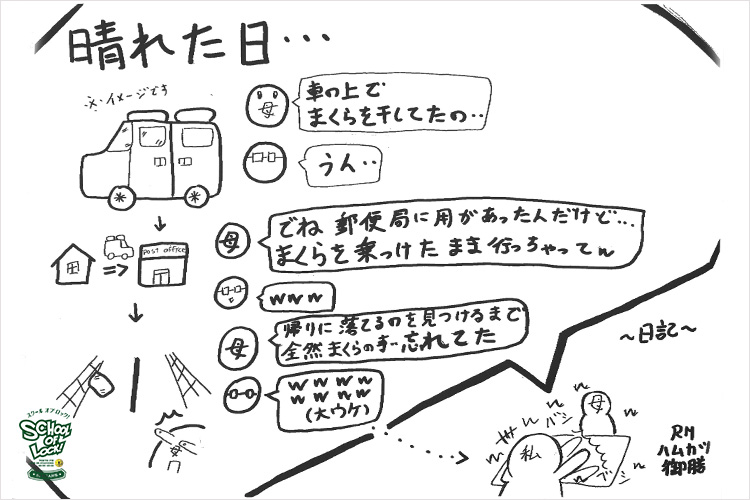 晴れた日…
※イメージです
母
車の上で
まくらを干してたの‥
うん‥
母
でね 郵便局に用があったんだけど…
まくらを乗っけたまま行っちゃってw
POST OFFICE
=>
www
母
帰りに落てるのを見つけるまで
全然まくらの事忘れてた
wwww
wwww
(大ウケ)
母
〜日記〜
母
バシ
バシ
私
RN
ハムカツ
御膳
スクール オブ ロック!
SCHOOL
OF
LOCK!